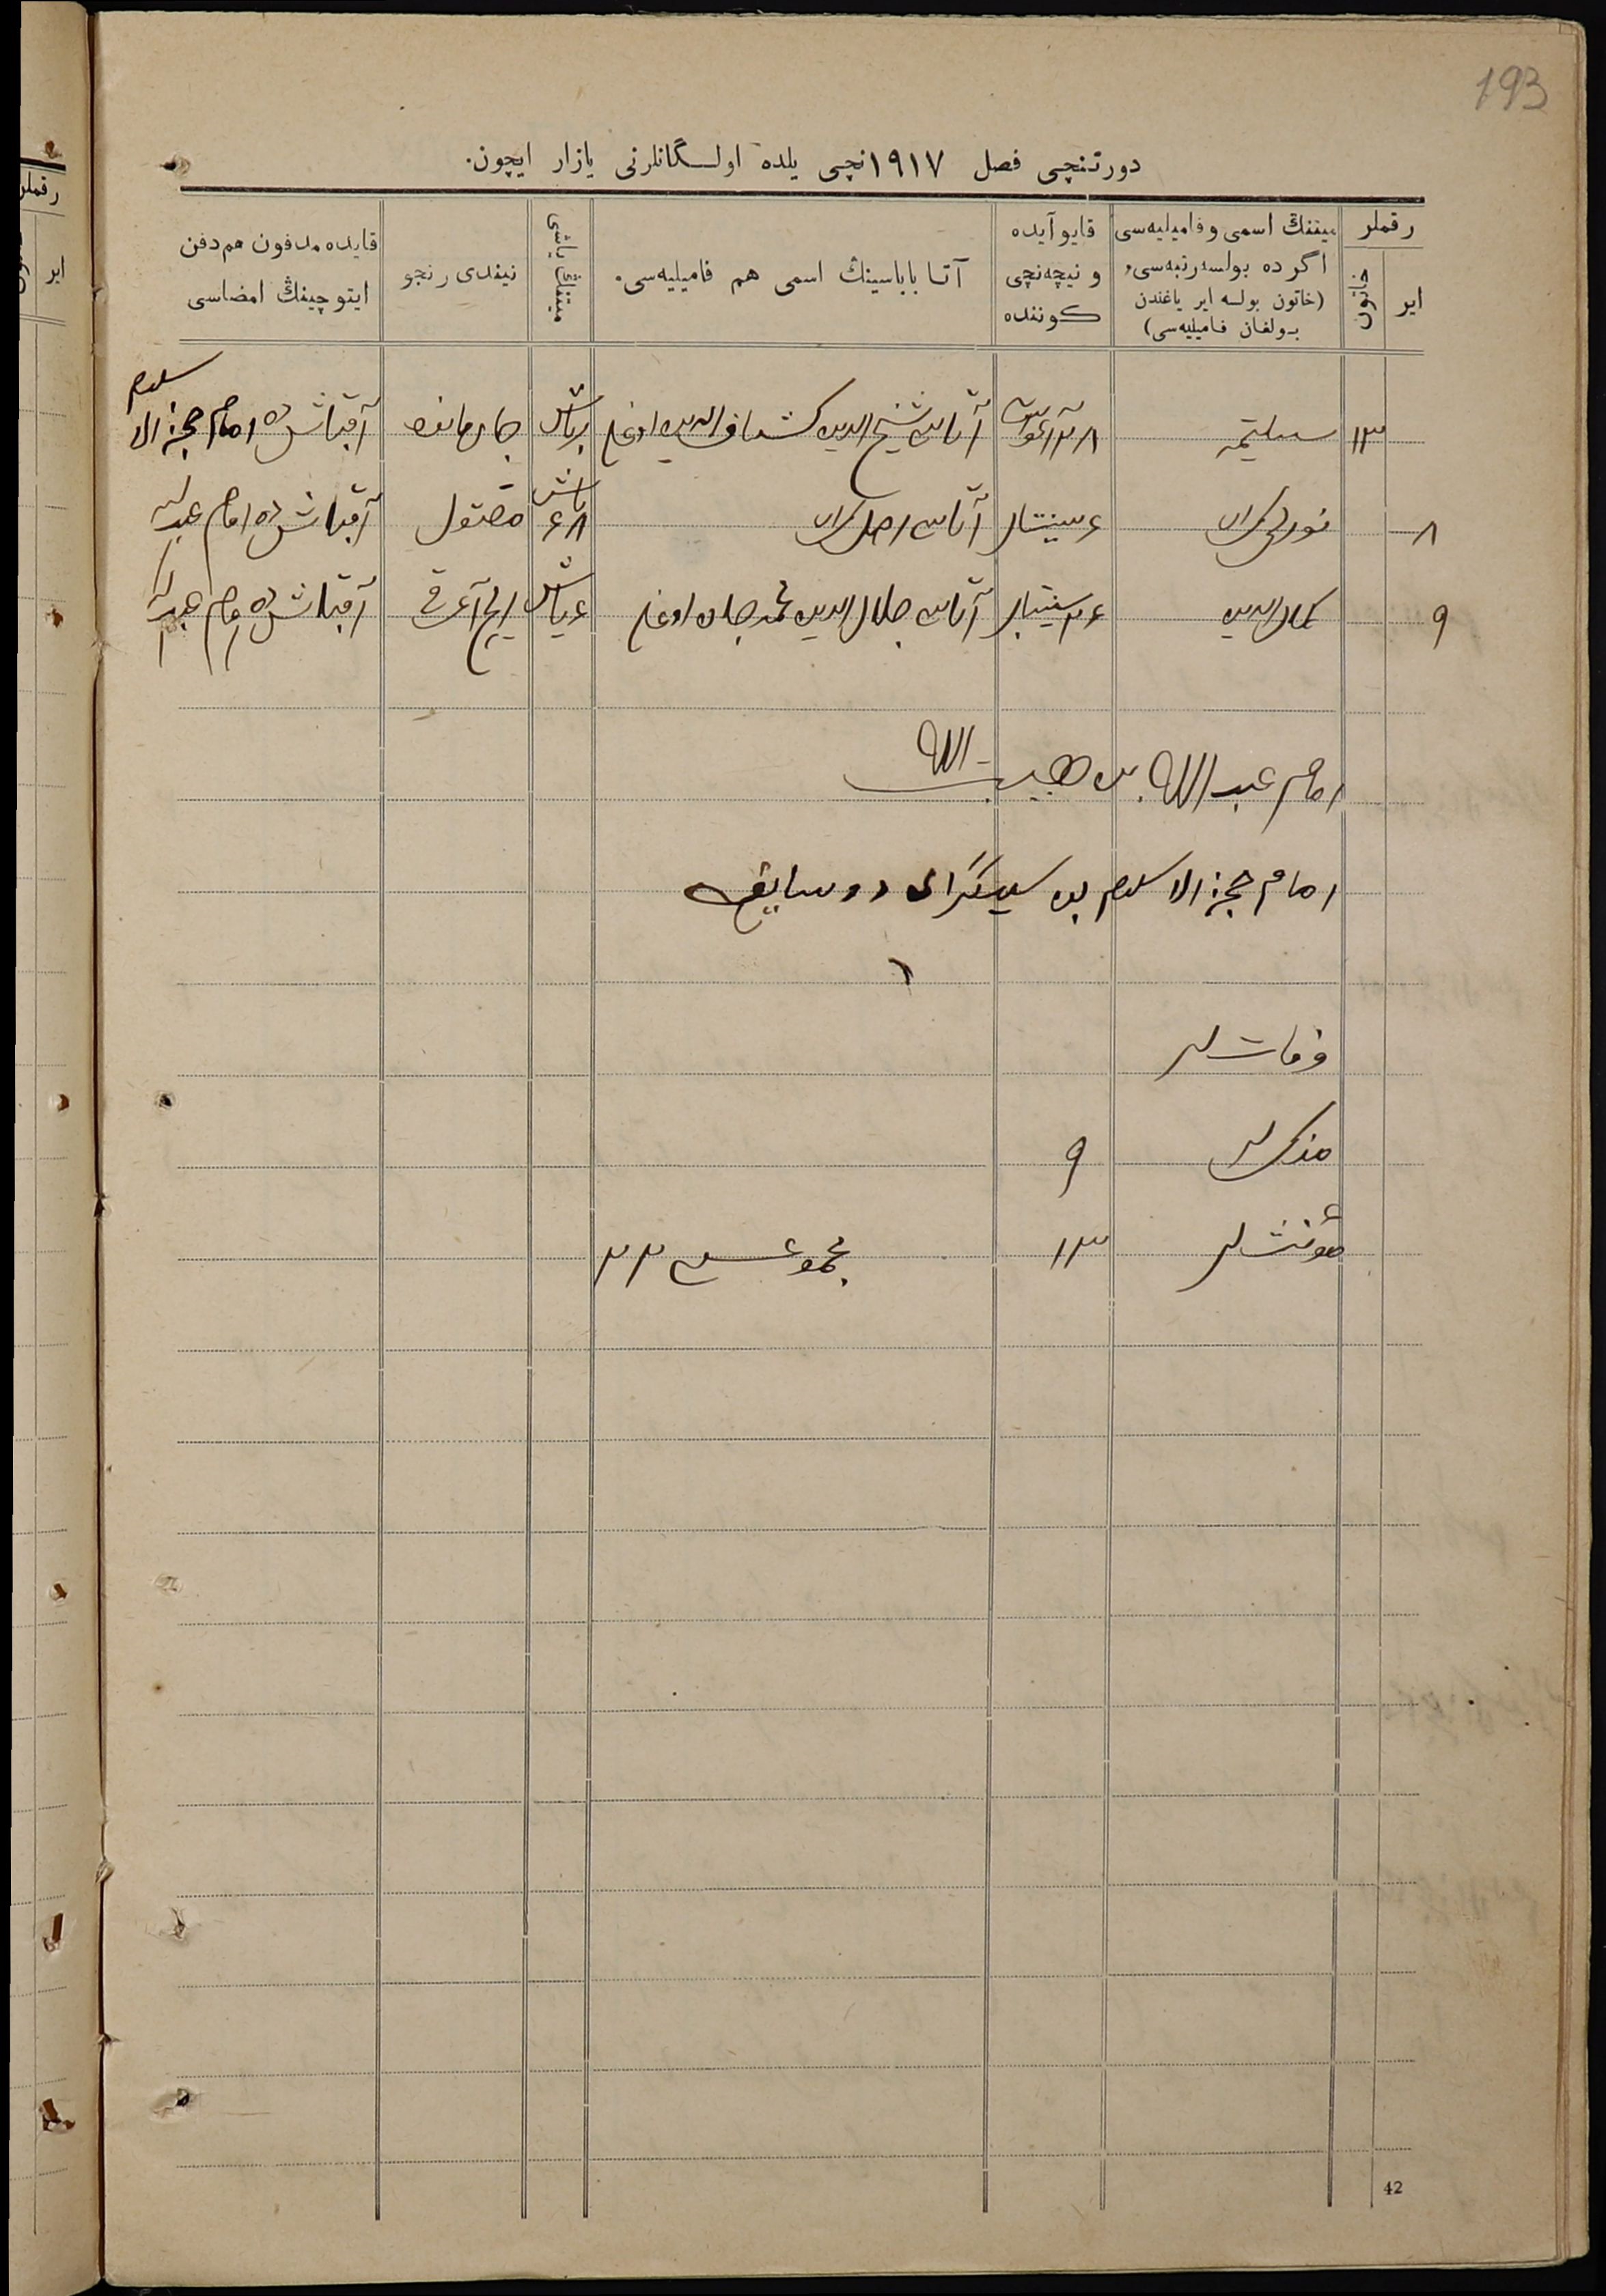 193
دورتنچی فصل ۱۹۱۷نچی یلده اولـگانلرنی یازار ایچون.
رقملر
ایر
خاتون
میتنڭ اسمی و فامیلیه‌سی اگرده بولسه رتبه‌سی, (خاتون بولسه ایر یاغندن بولغان فامیلیه‌سی)
قایو آیده و نیچه‌نچی کوننده
آتا باباسینڭ اسمی هم فامیلیه‌سی.
میتنڭ یاشی
نیندی رنجو
قایده مدفون هم دفن ایتوچینڭ امضاسی
۱۳ سلیمه ۲۸ آغوست آتاسی شیخ الدین کشاف الدین اوغلی بر یاش آقتاش ده امام حجة الاسلام
۸ ۶ سینتابر آتاسی ۶۸ یاش مقتول آقتاش ده امام عبدالله
۹ کمال الدین ۲۶ سینتابر آتاسی جلال الدین محمد جان اوغلی ۶ یاش ایچ آغرقی آقتاش ده امام عبدالله
امام عبد الله بن حبیب الله
امام حجة الاسلام بن
۱
وفات لر
مذکرلر ۹
مؤنث لر ۱۳ مجموعسی ۲۲
42
رقملر
ایر